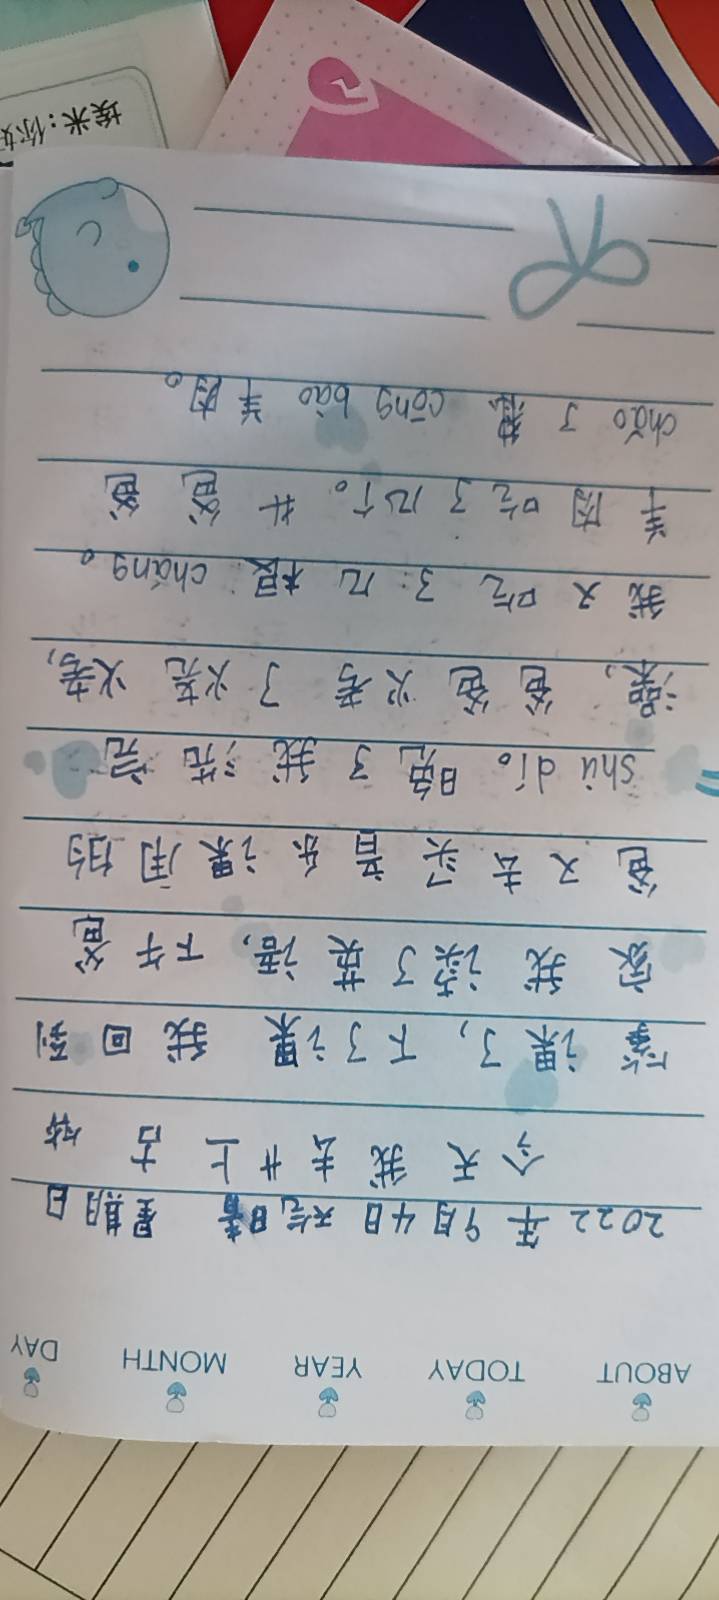 ABOUT TODAY YEAR MONTH DAY
2022年9月4日 天气晴 星期日
今天我去上古
筝课了，下了课我回到
家我读了英语，下午爸
爸又去买音乐课用的
shù dí。晚了我洗完
澡，爸爸烤了烧烤，
我又吃了几根cháng。
羊肉吃了几个。爸爸
chǎo了葱cōng bào羊肉。
埃米：你好